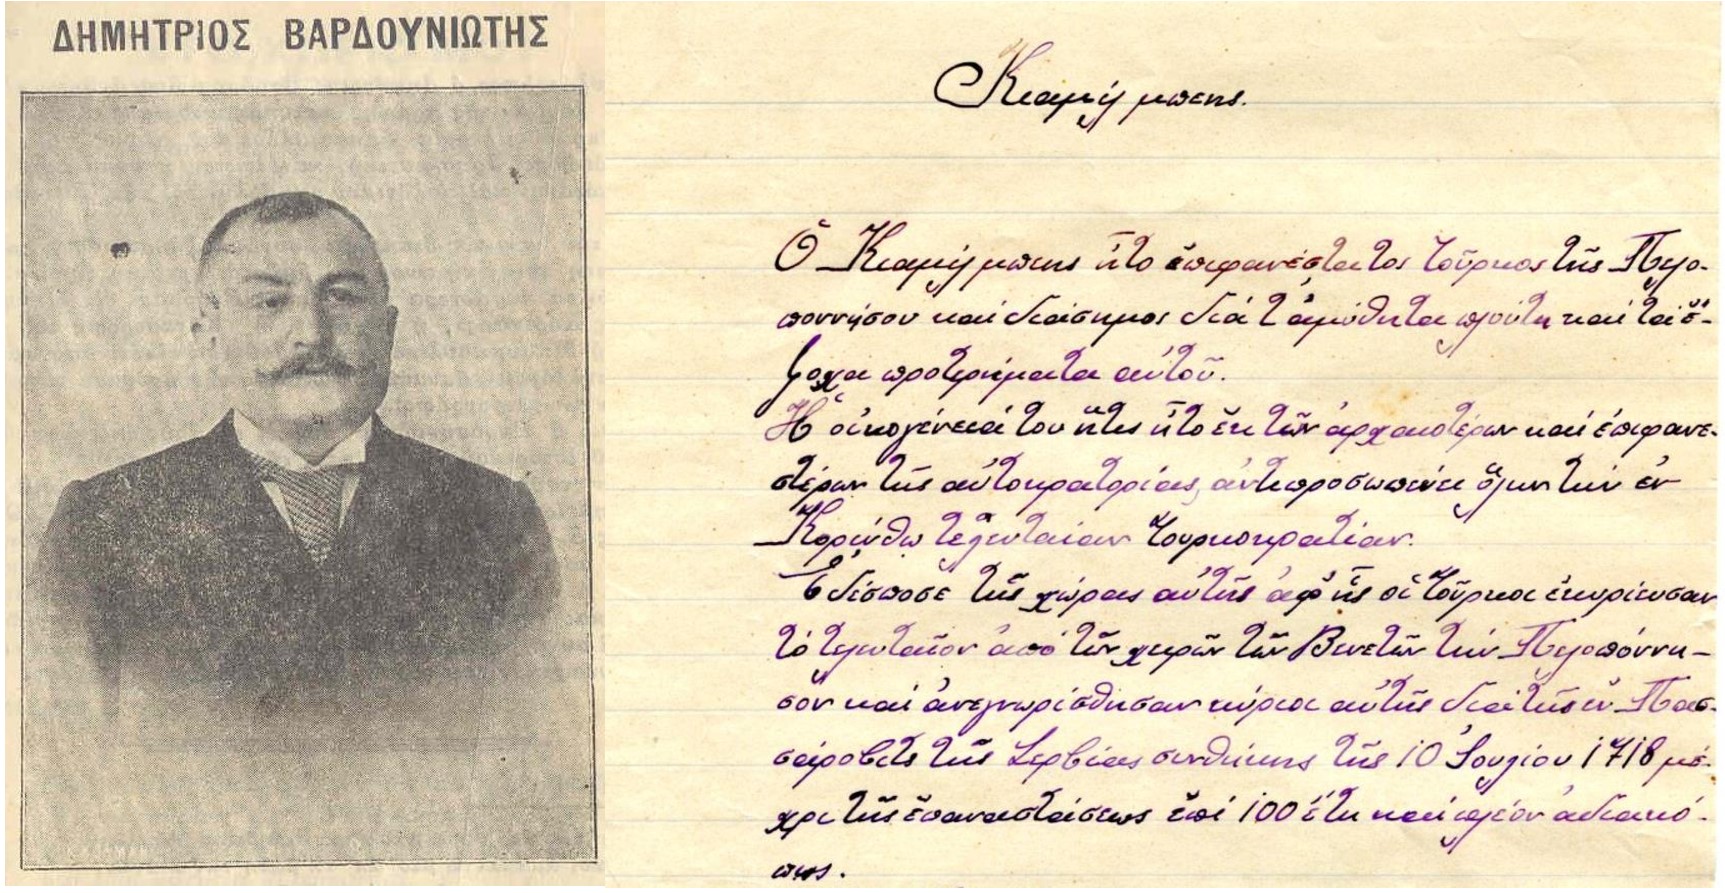 ΔΗΜΗΤΡΙΟΣ ΒΑΡΔΟΥΝΙΩΤΗΣ
Κιαμήλ μπεης.
Ὁ Κιαμήλ μπεης ἦτο ἐπιφανέστατος Τοῦρκος τῆς Πελο-
ποννήσου καὶ διάσημος διὰ τ' ἀμύθητα πλούτη καὶ τὰ ἔ-
ξοχα προτερήματα αὐτοῦ.
Ἡ οἰκογένειά του ἥτις ἦτο ἐκ τῶν ἀρχαιοτέρων καὶ ἐπιφανε-
στέρων τῆς αὐτοκρατορίας, ἀντιπροσωπεύει ὅλην τὴν ἐν
Κορίνθω τελευταίαν Τουρκοκρατίαν.
Ἐδέσποσε τῆς χώρας αὐτῆς ἀφ' ἧς οἱ Τοῦρκοι ἐκυρίευσαν
τὸ τελευταῖον ἀπὸ τῶν χειρῶν τῶν Βενετῶν τὴν Πελοπόννη-
σον καὶ ἀνεγνωρίσθησαν κύριοι αὐτῆς διὰ τῆς ἐν Πασ-
σάροβιτς τῆς Σερβίας συνθήκης τῆς 10 Ἰουλίου 1718 μέ-
χρι τῆς ἐπαναστάσεως ἐπὶ 100 ἔτη καὶ πλέον ἀδιακό-
πως.